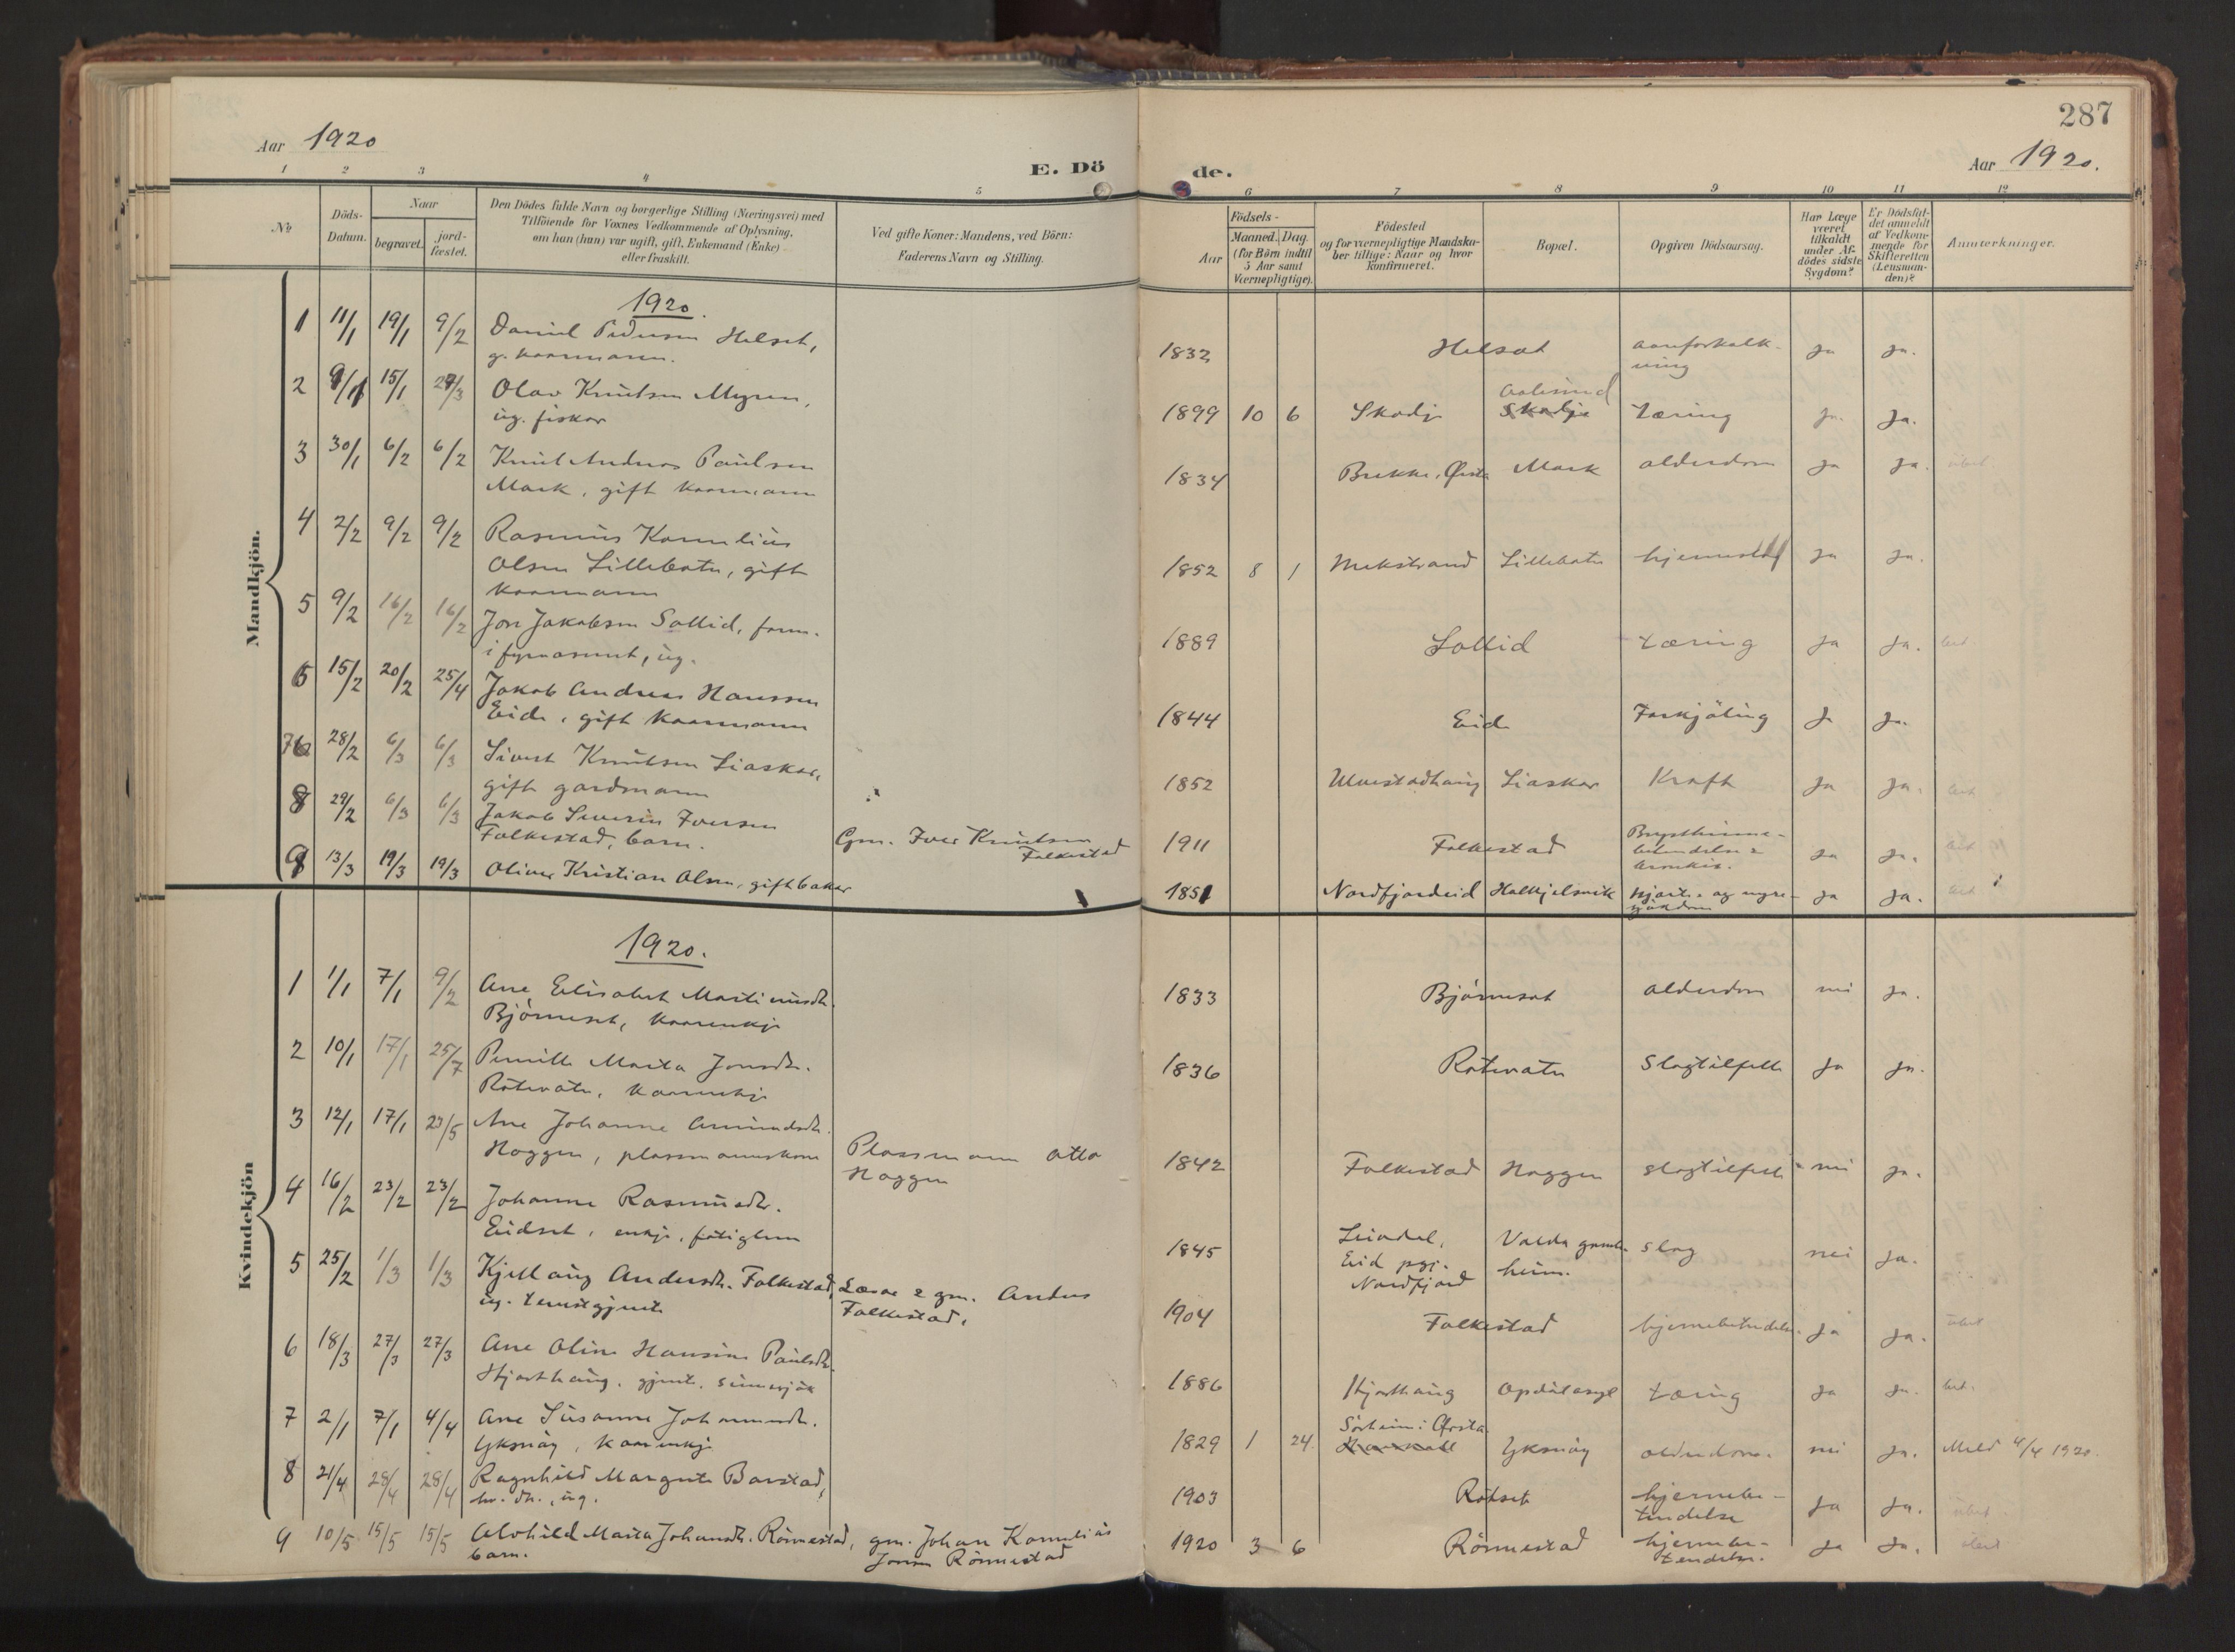 287
Aar 1920
E. Dö de.
Aar 1920.
1 2 3 4 5 6 7 8 9 10 11 12
№
Döds-Datum.
Naar
begravet.
jord-fæstet.
Den Dödes fulde Navn og borgerlige Stilling (Næringsvei) med
Tilföiende for Voxnes Vedkommende af Oplysning,
om han (hun) var ugift, gift, Enkemand (Enke)
eller fraskilt.
Ved gifte Koner: Mandens, ved Börn:
Faderens Navn og Stilling.
Födsels-
Aar
Maaned. Dag.
(for Börn indtil
5 Aar samt
Værnepligtige).
Födested
og for værnepligtige Mandska-
ber tillige: Naar og hvor
konfirmeret.
Bopæl.
Opgiven Dödsaarsag.
Har Læge
været
tilkaldt
under Af-
dödes sidste
Sygdom?
Er Dödsfal-
det anmeldt
af Vedkom-
mende for
Skifteretten
(Lensman-
den)?
Anmærkninger.
Mandkjön.
1920.
1 11/1 19/1 9/2 Daniel Pedersen Helset, 1832 Helset aareforkalk- ja ja.
g. kaarmann. ning
2 9/1 15/1 27/3 Olav Knutsen Myren, 1899 10 6 Skodje Aalesund Skodje tæring ja. ja.
ug. fisker
3 30/1 6/2 6/2 Knut Andreas Paulsen 1834 Brekke, Ørsta Mork alderdom ja ja.
Mork, gift kaarmann
4 2/2 9/2 9/2 Rasmus Kornelius
Olsen Lillebøtn, gift 1852 8 1 Mekstrand Lillebøtn hjerneslag ja ja.
kaarmann
5 9/2 16/2 16/2 Jon Jakobsen Sollid, form. 1889 Sollid tæring ja ja.
i fyrvæsenet, ug.
6 15/2 20/2 25/4 Jakob Andreas Hanssen 1844 Eide Forkjöling ja ja.
Eide, gift kaarmann
7 28/2 6/3 6/3 Sivert Knutsen Liaskar, 1852 Ulvestadhaug Liaskar Kræft ja ja.
gift gardmann
8 29/2 6/3 6/3 Jakob Severin Iversen Gm. Iver Knutsen 1911 Folkestad Brysthinne- ja ja.
Folkestad, barn. Folkestad betendelse &
9 13/3 19/3 19/3 Oliver Kristian Olsen, gift baker 1851 Nordfjordeid Halkjelsvik hjerte- og nyre- ja ja.
Kvindekjön
1920.
1 1/1 7/1 9/2 Ane Elisabet Martinusdt. 1833 Björneset alderdom nei ja.
Björneset, kaarenkje
2 10/1 17/1 25/7 Pernille Marta Jonsdt. 1836 Rotevatn Slagtilfelle ja ja.
Rotevatn, kaarenkje
3 12/1 17/1 23/5 Ane Johanne Amundsdt. Plassmann Otto 1842 Folkestad Haggen slagtilfelle nei ja.
Haggen, plassmannskone Haggen
4 16/2 23/2 23/2 Johanne Rasmusdt. 1845 Leivdal, Volda gamle- slag nei ja.
Eidset, enkje, fatiglem Eid pgj. heim.
Nordfjord
5 25/2 1/3 1/3 Kjellaug Andersdt. Folkestad, Læsar & gm. Anders 1904 Folkestad hjernebetendelse. ja ja.
ug. tenestgjente Folkestad.
6 18/3 27/3 27/3 Ane Oline Hansine Paulsdt. 1886 Hjorthaug tæring ja ja.
Hjorthaug, gjente, sinnsjuk
7 2/1 7/1 4/4 Ane Susanne Johannesdt. 1829 1 24. Sörheim i Ørsta Yksnöy alderdom. nei ja. Meld 4/4 1920.
Yksnöy, kaarenkje
8 21/4 28/4 28/4 Ragnhild Margrete Barstad, 1903 Rötset hjernebe- ja ja.
hr. dt., ug. tendelse
9 10/5 15/5 15/5 Alvhild Marta Johansdt. Rönnestad, gm. Johan Kornelius 1920 3 6 Rönnestad hjernebe- ja ja.
barn. Jonsen Rönnestad tendelse.